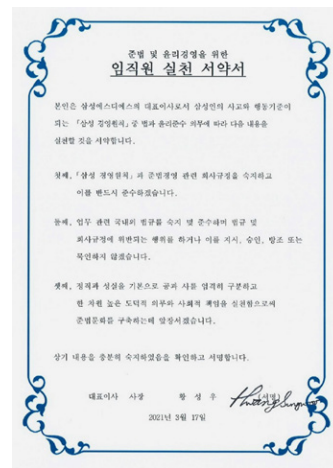 준법 및 윤리경영을 위한
임직원 실천 서약서
본인은 삼성에스디에스의 대표이사로서 삼성인의 사고와 행동기준이
되는 「삼성 경영원칙」중 법과 윤리준수 의무에 따라 다음 내용을
실천할 것을 서약합니다.
첫째, 「삼성 경영원칙」과 준법경영 관련 회사규정을 숙지하고
이를 반드시 준수하겠습니다.
둘째, 업무 관련 국내외 법규를 숙지 및 준수하며 법규 및
회사규정에 위반되는 행위를 하거나 이를 지시, 승인, 방조 또는
묵인하지 않겠습니다.
셋째, 정직과 성실을 기본으로 공과 사를 엄격히 구분하고
한 차원 높은 도덕적 의무와 사회적 책임을 실천함으로써
준법문화를 구축하는데 앞장서겠습니다.
상기 내용을 충분히 숙지하였음을 확인하고 서명합니다.
대표이사 사장 황 성 우 (서명) Hwang Sungwoo
2021년 3월 17일